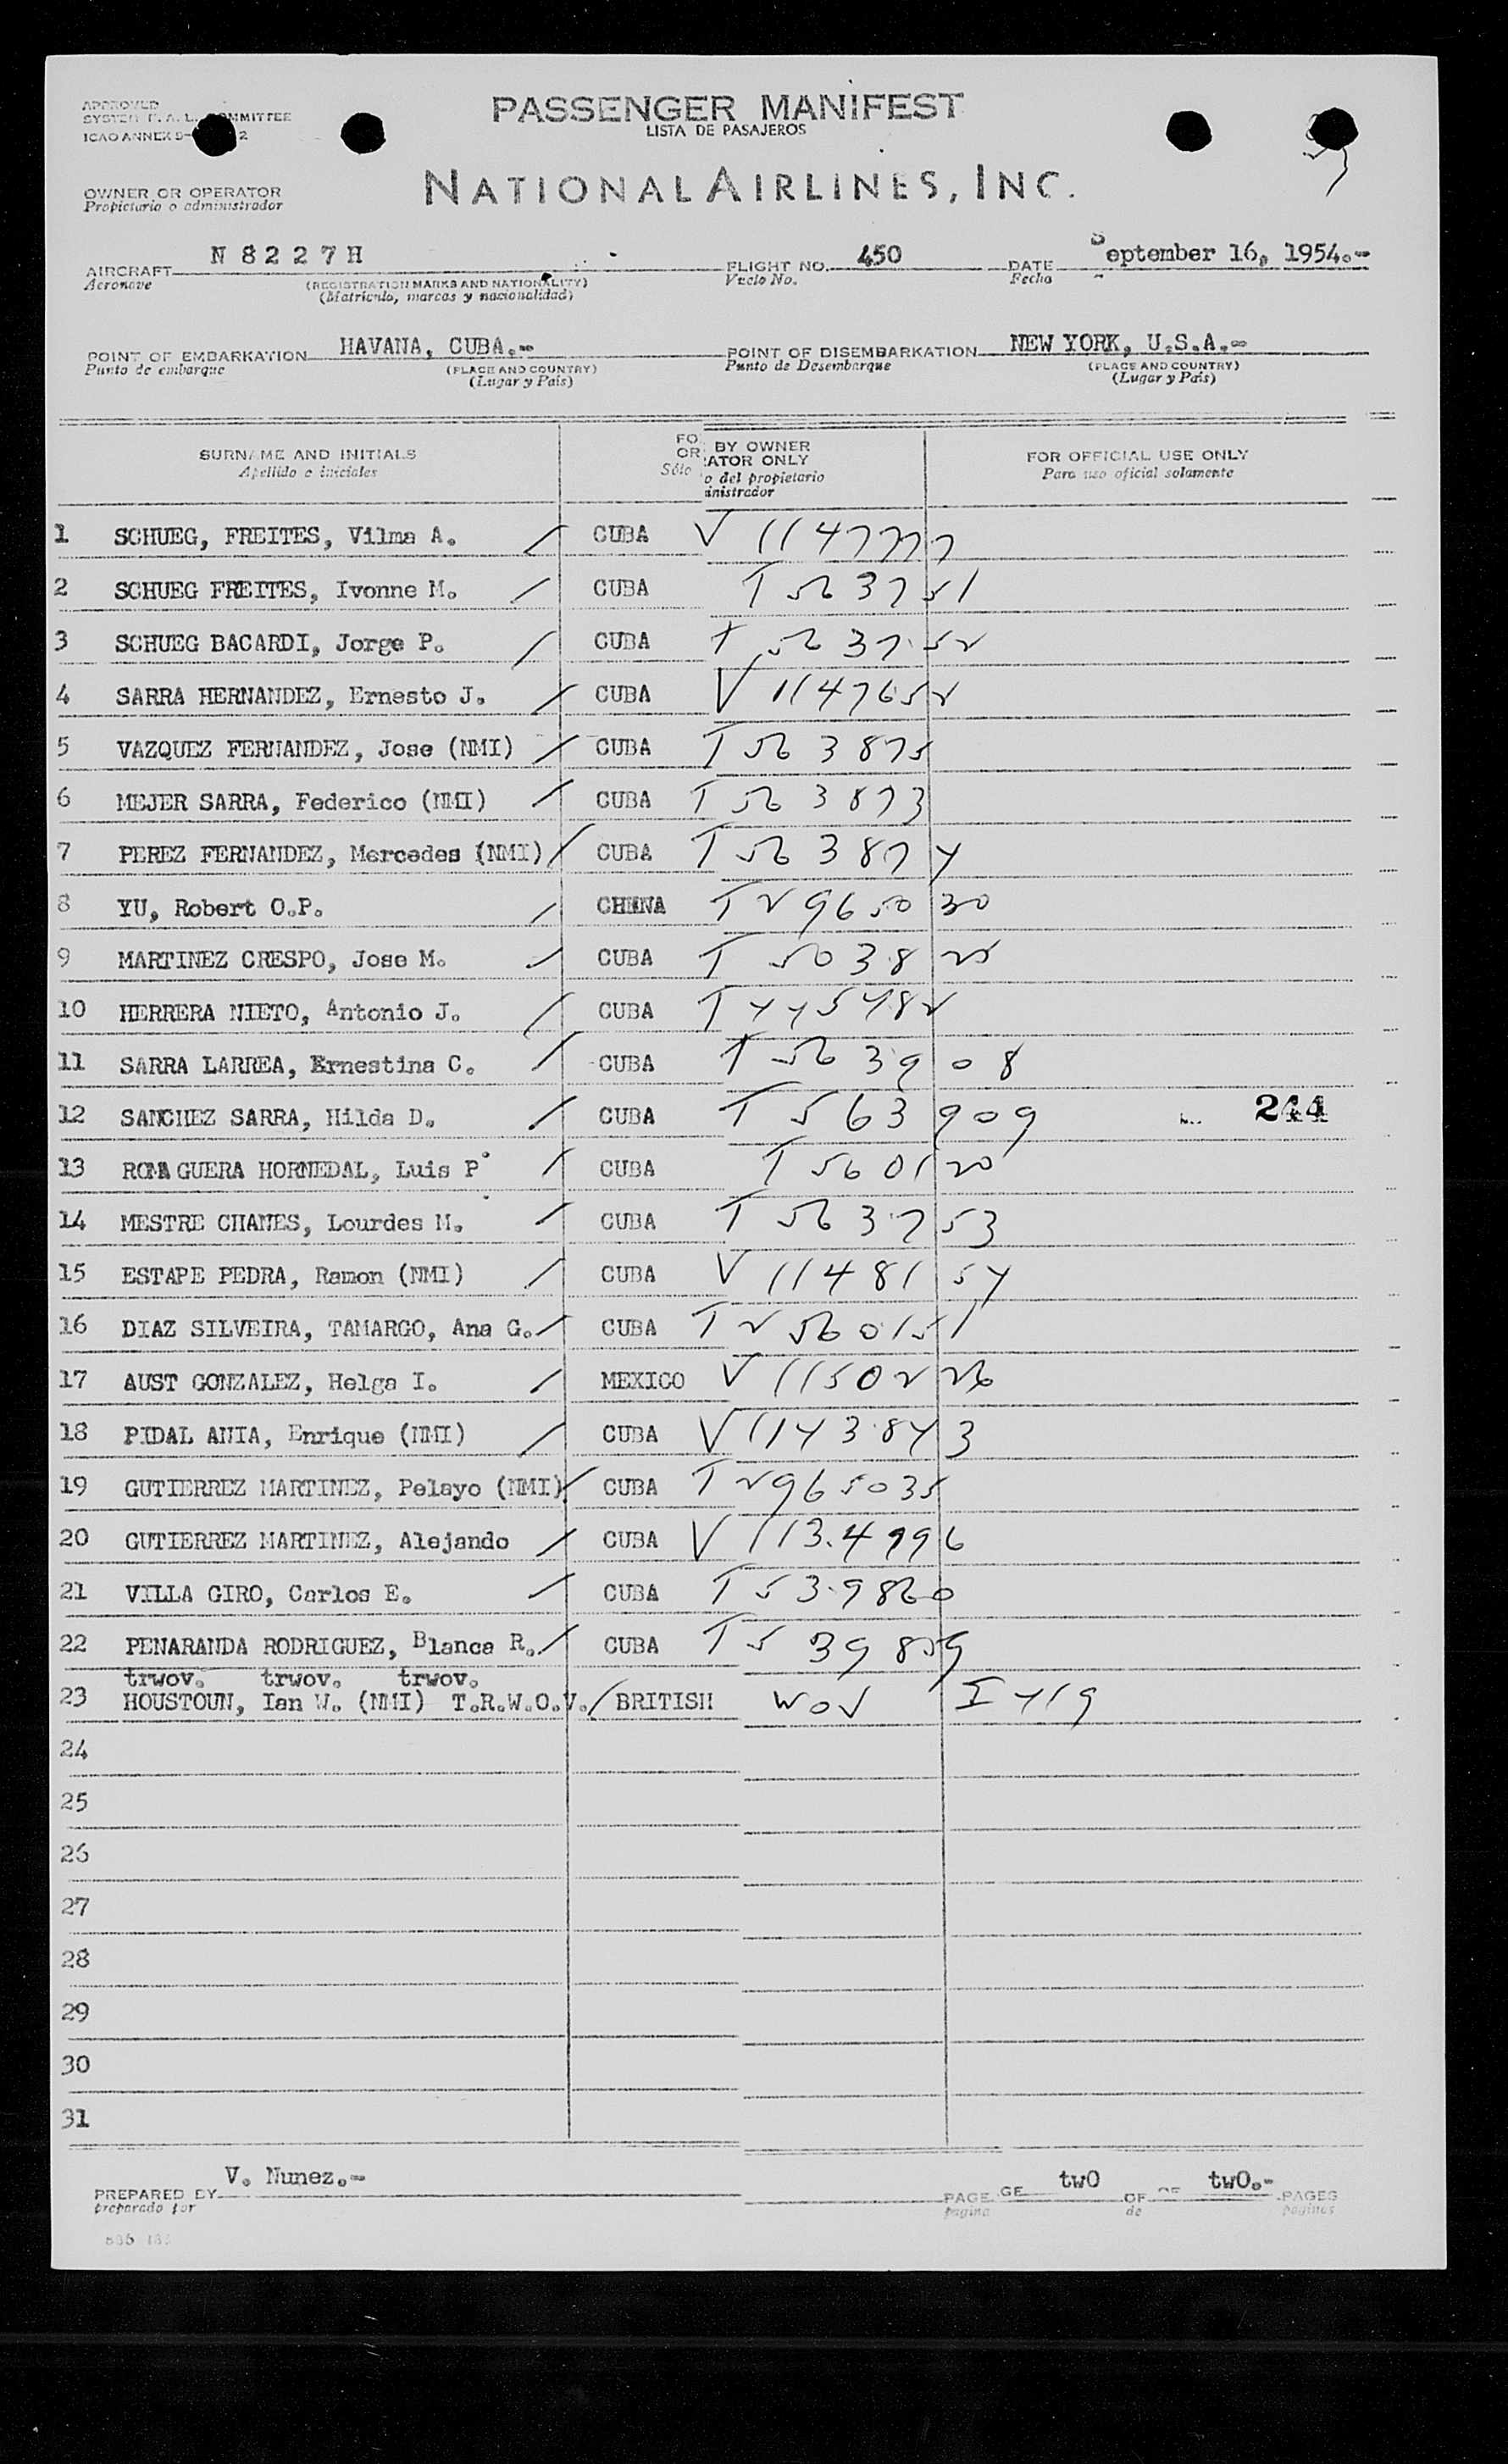 APPROVED
SYSTEM F. A. L. COMMITTEE
ICAO ANNEX 9- 2
PASSENGER MANIFEST
LISTA DE PASAJEROS
OWNER OR OPERATOR
Propietario o administrador
NATIONAL AIRLINES, INC.
AIRCRAFT N 8 2 2 7 H FLIGHT NO. 450 DATE September 16, 1954.-
Aeronave (REGISTRATION MARKS AND NATIONALITY) Vuelo No. Fecha
(Matricula, marcas y nacionalidad)
POINT OF EMBARKATION HAVANA, CUBA.- POINT OF DISEMBARKATION NEW YORK, U.S.A.-
Punto de embarque (PLACE AND COUNTRY) Punto de Desembarque (PLACE AND COUNTRY)
(Lugar y País) (Lugar y País)
SURNAME AND INITIALS FO BY OWNER FOR OFFICIAL USE ONLY
Apellido e iniciales OR ATOR ONLY Para uso oficial solamente
Sólo o del propietario
inistrador
1 SCHUEG, FREITES, Vilma A. / CUBA V 1147777
2 SCHUEG FREITES, Ivonne M. / CUBA T 563751
3 SCHUEG BACARDI, Jorge P. / CUBA T 563752
4 SARRA HERNANDEZ, Ernesto J. / CUBA V 1147652
5 VAZQUEZ FERNANDEZ, Jose (NMI) / CUBA T 563875
6 MEJER SARRA, Federico (NMI) / CUBA T 563873
7 PEREZ FERNANDEZ, Mercedes (NMI) / CUBA T 563874
8 YU, Robert O.P. / CHINA T 2965030
9 MARTINEZ CRESPO, Jose M. / CUBA T 503825
10 HERRERA NIETO, Antonio J. / CUBA T 445482
11 SARRA LARREA, Ernestina C. / CUBA T 563908
12 SANCHEZ SARRA, Hilda D. / CUBA T 563909 244
13 ROMAGUERA HORNEDAL, Luis P. / CUBA T 560120
14 MESTRE CHANES, Lourdes M. / CUBA T 563753
15 ESTAPE PEDRA, Ramon (NMI) / CUBA V 1148154
16 DIAZ SILVEIRA, TAMARGO, Ana G. / CUBA T 2560151
17 AUST GONZALEZ, Helga I. / MEXICO V 1150226
18 PIDAL ANIA, Enrique (NMI) / CUBA V 1143843
19 GUTIERREZ MARTINEZ, Pelayo (NMI) / CUBA T 2965035
20 GUTIERREZ MARTINEZ, Alejando / CUBA V 1134996
21 VILLA GIRO, Carlos E. / CUBA T 539860
22 PENARANDA RODRIGUEZ, Blanca R. / CUBA T 539859
trwov. trwov. trwov.
23 HOUSTOUN, Ian W. (NMI) T.R.W.O.V. / BRITISH WOV I 419
24
25
26
27
28
29
30
31
PREPARED BY V. Nunez.- PAGE GE twO OF OF twO.- PAGES
preparado por pagina de paginas